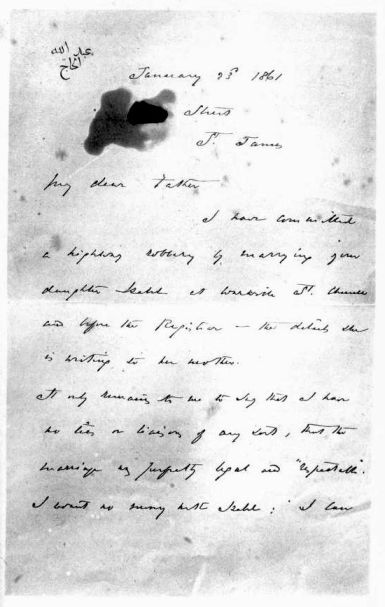 عبد الله
الحاج
January 23d 1861
Street
St. James
My dear Father
I have committed
a highway robbery by marrying your
daughter Isabel at Warwick St. Church
and before the Registrar — the details she
is writing to her mother.
It only remains to me to say that I have
no ties or liaisons of any sort, that the
marriage was perfectly legal and "respectable".
I want no money with Isabel; I can